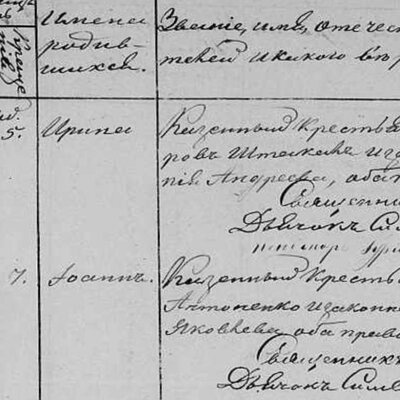 Имена
родив-
шихся.
Званіе, имя, отечест
и какого вѣр
5. Ирина
Казенный Крестья
ровъ
Андреева, оба
Священник
Дьячокъ Сим
7. Іоаннъ.
Казенный Кресть
Антоненко и законн
Яковлева оба право
Священникъ
Дьячокъ Симе